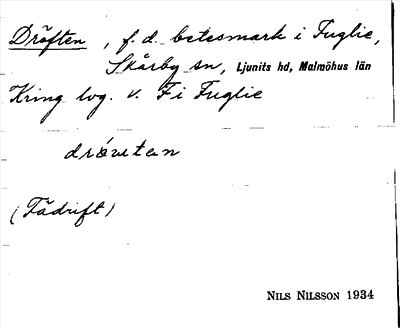 Dräften, f.d. betesmark i Fuglie,
Skårby sn, Ljunits hd, Malmöhus län
Kring bog. v. F i Fuglie
(Fädrift)
NILS NILSSON 1934